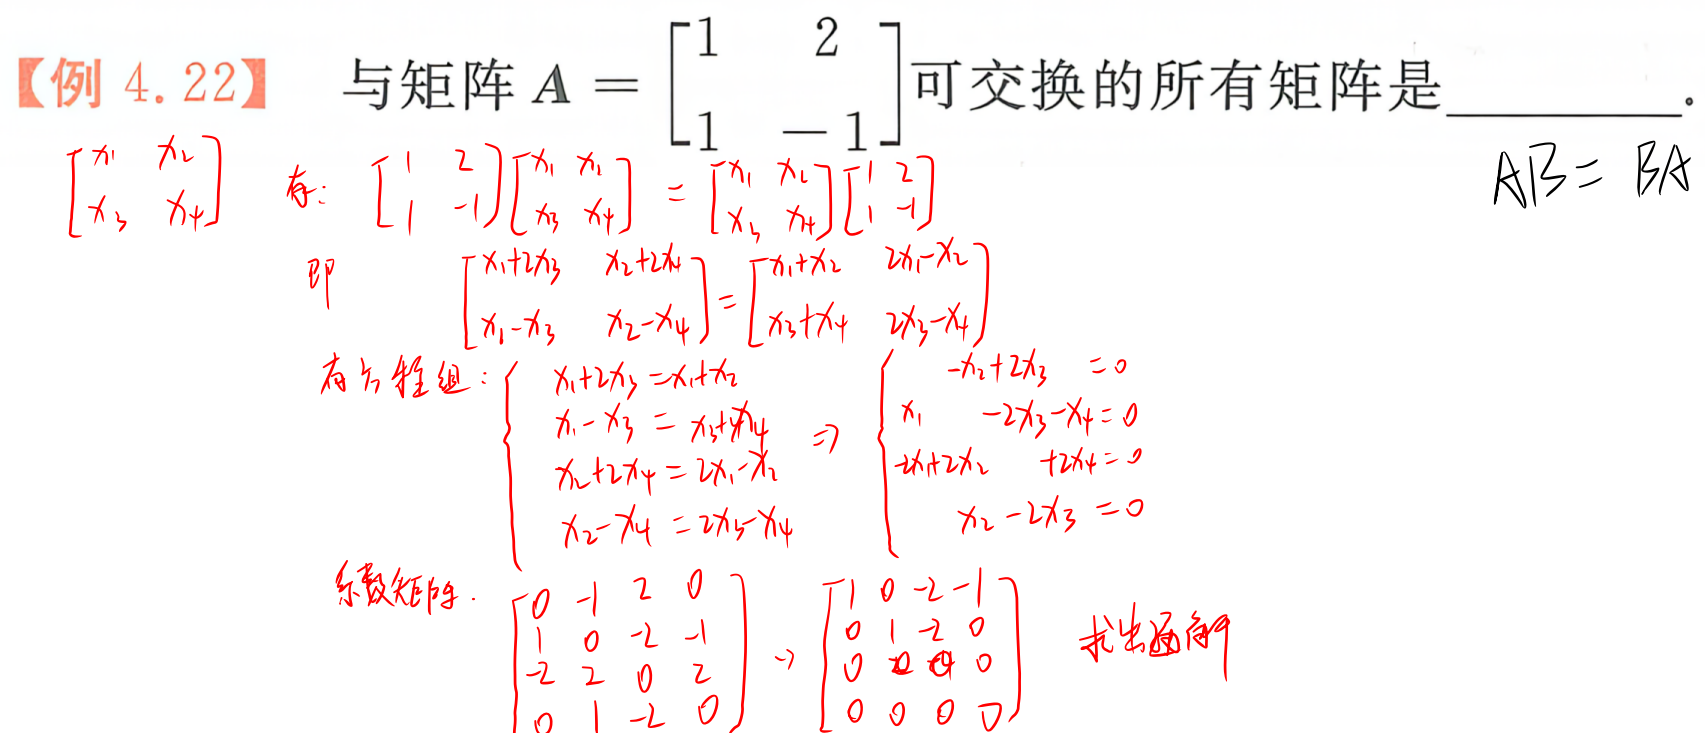 【例 4.22】 与矩阵 A = [1 2; 1 -1] 可交换的所有矩阵是________.
AB = BA
[x₁ x₂; x₃ x₄] 有: [1 2; 1 -1][x₁ x₂; x₃ x₄] = [x₁ x₂; x₃ x₄][1 2; 1 -1]
即 [x₁+2x₃ x₂+2x₄; x₁-x₃ x₂-x₄] = [x₁+x₂ 2x₁-x₂; x₃+x₄ 2x₃-x₄]
有方程组: { x₁+2x₃=x₁+x₂ ⇒ { -x₂+2x₃ =0
x₁-x₃ = x₃+x₄ x₁ -2x₃-x₄=0
x₂+2x₄=2x₁-x₂ -2x₁+2x₂ +2x₄=0
x₂-x₄=2x₃-x₄ x₂-2x₃=0
系数矩阵. [0 -1 2 0; 1 0 -2 -1; -2 2 0 2; 0 1 -2 0] → [1 0 -2 -1; 0 1 -2 0; 0 0 0 0; 0 0 0 0] 求出通解